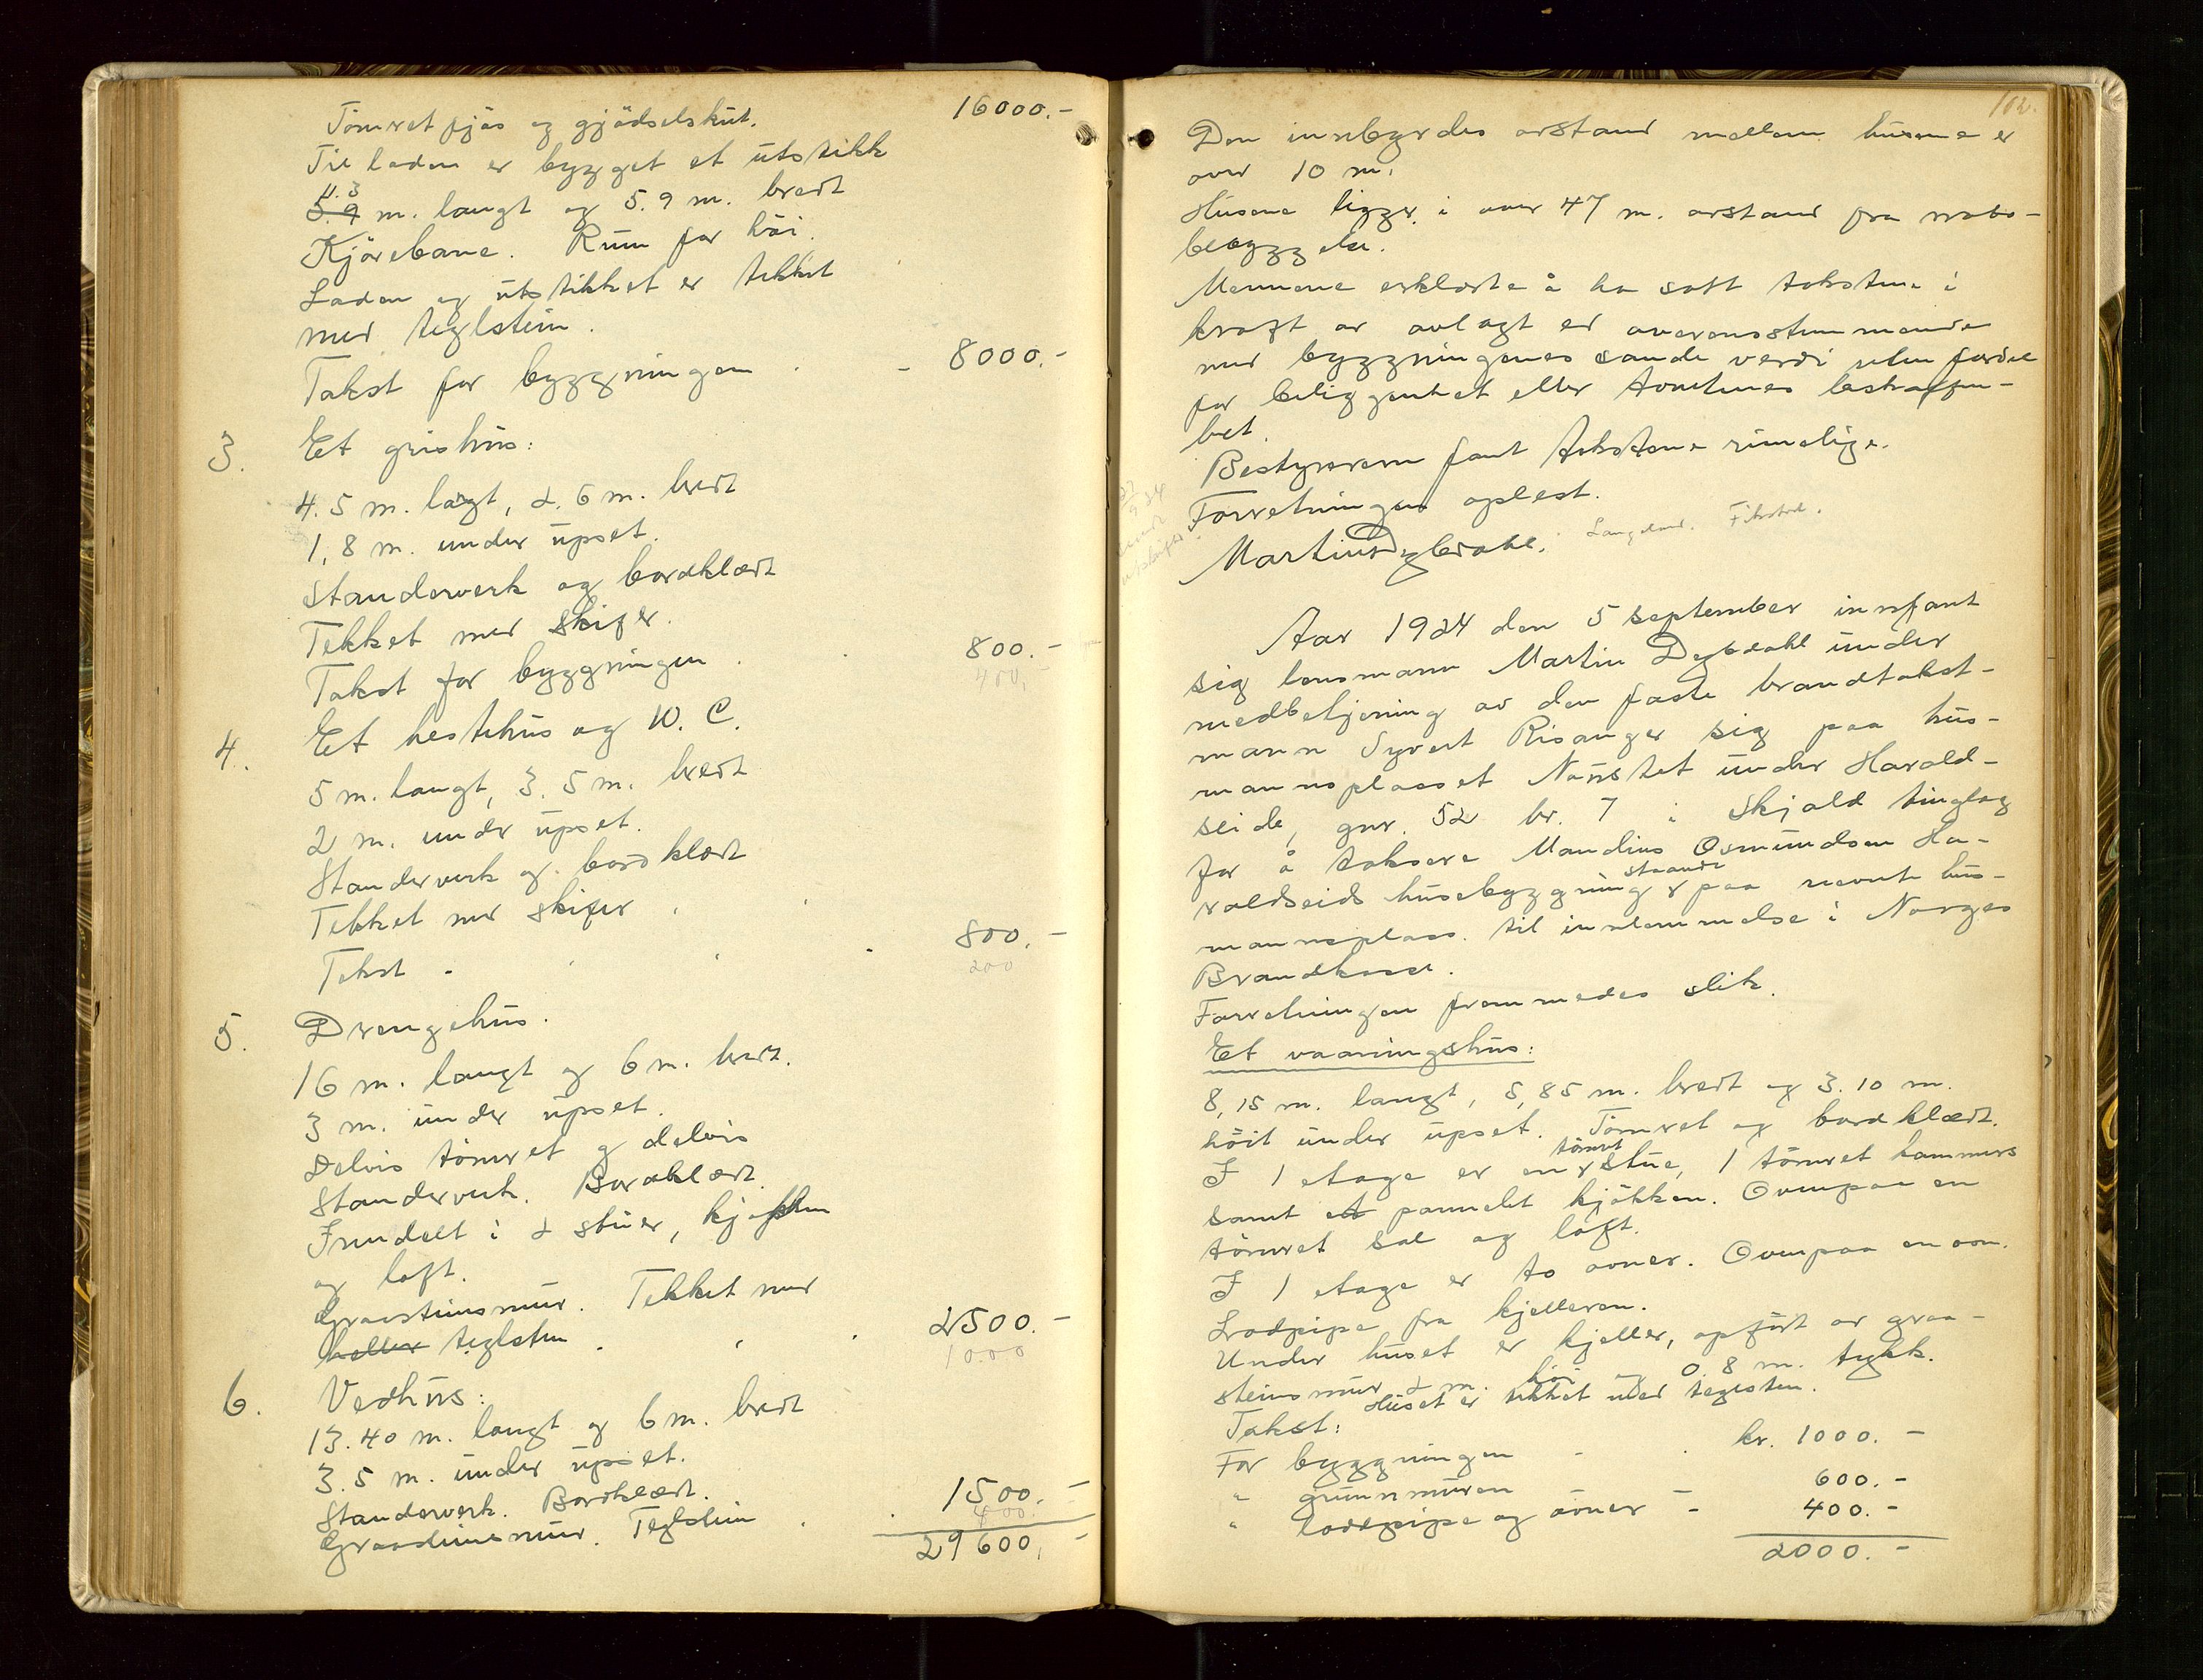 16000.-
Tömret fjös og gjödselskut.
Til laden er bygget et utstikk
11.3
5.9 m. langt og 5.9 m. bredt
Kjörebane. Rum for höi.
Laden og utstikket er tekket
med teglstein.
Takst for byggningen . - 8000.-
3. Et grishus:
4.5 m. langt, 2.6 m. bredt
1,8 m. under upset.
Standerverk og bordklædt
Tekket med skifer.
Takst for byggningen . . 800.-
400,
4. Et hestehus og W. C.
5 m. langt, 3.5 m. bredt
2 m. under upset.
Standerverk og bordklædt
Tekket med skifer .
Takst - . . . 800.-
200
5. Drengehus.
16 m. langt og 6 m. bredt.
3 m. under upset.
Delvis tömret og delvis
Standerverk. Bordklædt.
Inndelt i 2 stuer, kjökken
og loft.
Graasteinsmur. Tekket med
heller teglsten . . . 2500.-
1000
6. Vedhus:
13.40 m. langt og 6 m. bredt
3.5 m. under upset.
Standerverk. Bordklædt.
Graasteinsmur. Teglstein . . 1500.-
400.
29600,-
102.
Den innbyrdes avstand mellem husene er
over 10 m.
Husene ligger i over 47 m. avstand fra nabo-
bebyggelse.
Mennene erklærte å ha satt takstene i
kraft av avlagt ed overensstemmende
med byggningenes sande verdi uten fordel
for beliggenhet eller tomtenes beskaffen-
het.
Bestyreren fant takstene rimelige.
Forretningen oplest.
Martin Dybdahl. Langeland.
Aar 1924 den 5 september innfant
sig lensmann Martin Dybdahl under
medbetjening av den faste brandtakst-
mann Syvert Risanger sig paa hus-
mannsplasset Naustet under Harald-
seide, gnr. 52 br. 7 i Skjold tinglag
for å taksere Mandius Osmundsen Ha-
staande
raldseids husebyggning paa nevnte hus-
mannsplass til innlemmelse i Norges
Brandkasse.
Forretningen fremmedes slik.
Et vaaningshus:
8,15 m. langt, 5,85 m. bredt og 3.10 m.
höit under upset. Tömret og bordklædt.
tömret
I 1 etage er en stue, 1 tömret kammers
samt et pannelt kjökken. Ovenpaa en
tömret sal og loft.
I 1 etage er to ovner. Ovenpaa en ovn.
Lodpipe fra kjelleren.
Under huset er kjeller, opfört av graa-
steinsmur 2 m. höi og 0.8 m. tykk.
Huset er tekket med teglsten.
Takst:
For byggningen - . kr. 1000.-
" grunnmuren 600.-
" lodpipe og ovner - 400.-
2000.-